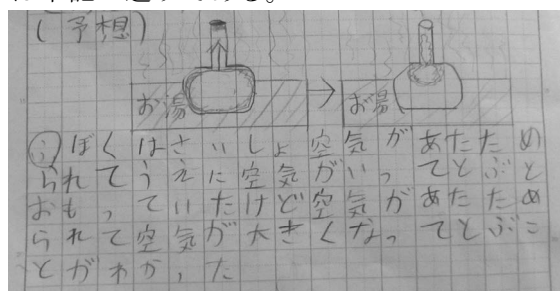 (予想)
お湯 → お湯
ぼくはさいしょ空気があたため
られてうえに空気がいってとぶと
おもっていたけど空気があたため
られて空気が大きくなってとぶこ
とがわかった